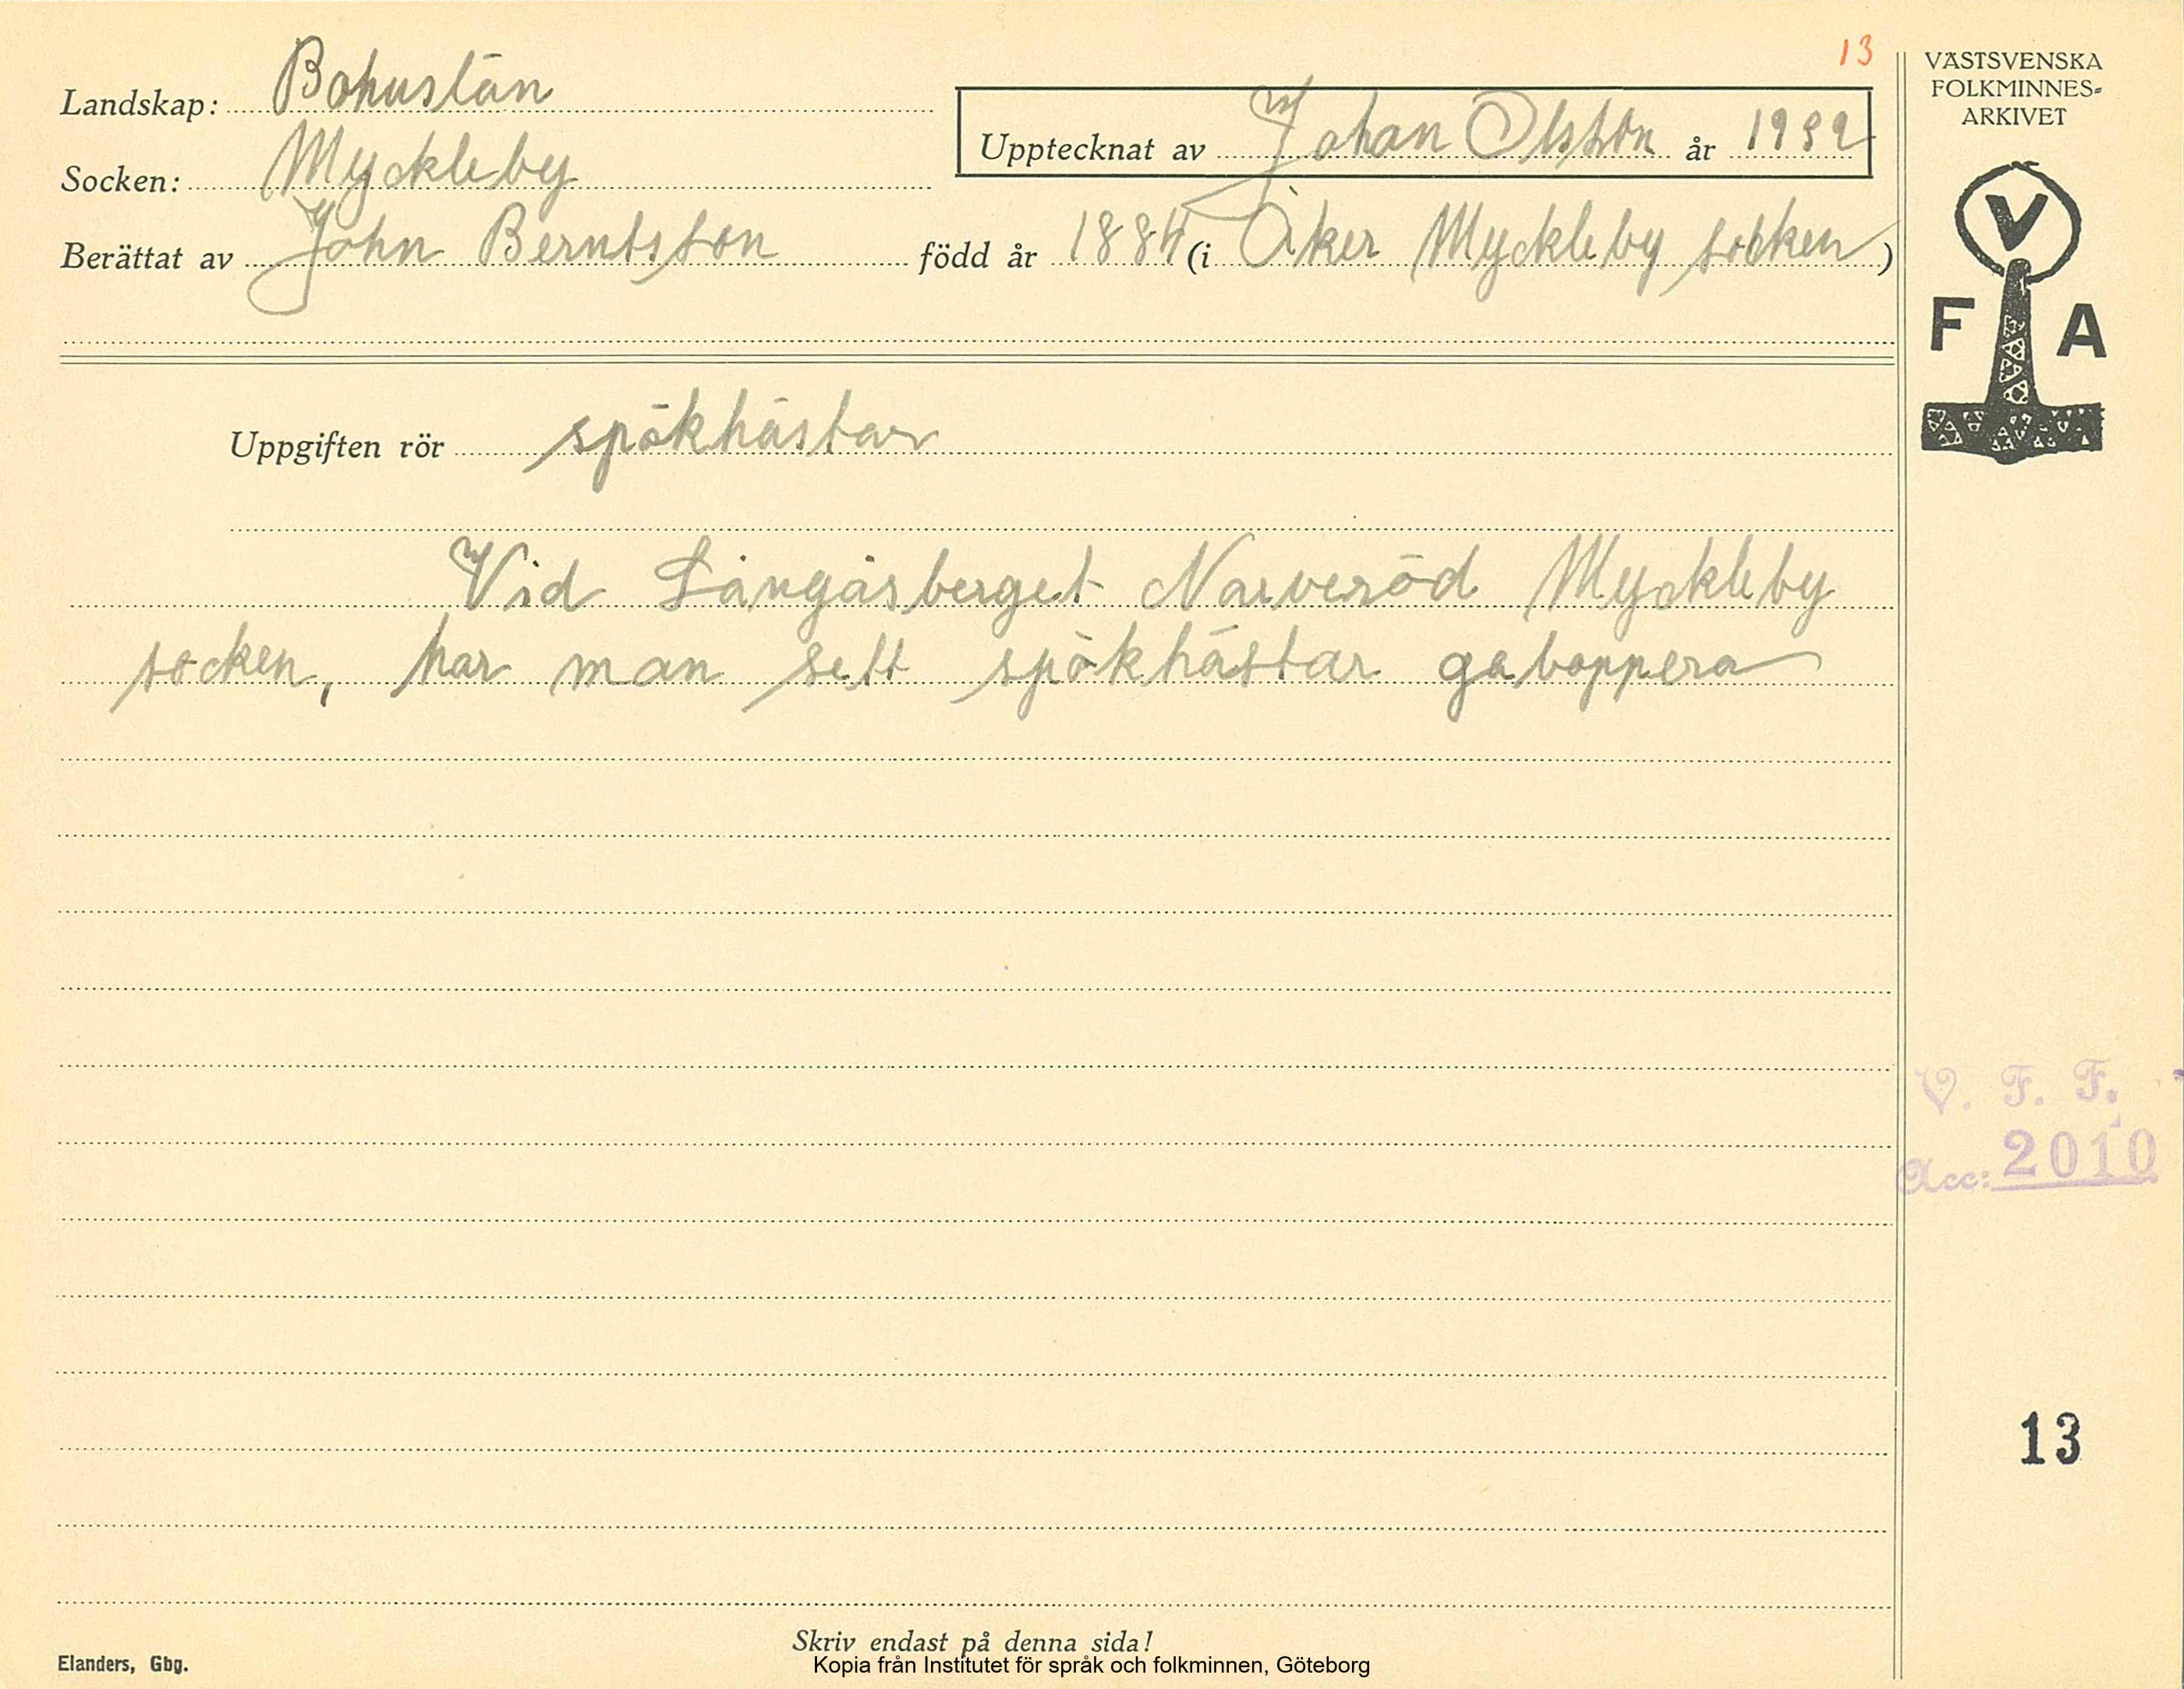 13
VÄSTSVENSKA
FOLKMINNES-
ARKIVET
Landskap: Bohuslän
Upptecknat av Johan Olsson år 1932
Socken: Myckleby
Berättat av John Berntsson född år 1884 (i Åker Myckleby socken)
V
F A
Uppgiften rör spökhästar
Vid Långåsberget Narveröd Myckleby
socken, har man sett spökhästar galoppera
V. F. F.
Acc: 2010
13
Skriv endast på denna sida!
Elanders, Gbg.
Kopia från Institutet för språk och folkminnen, Göteborg